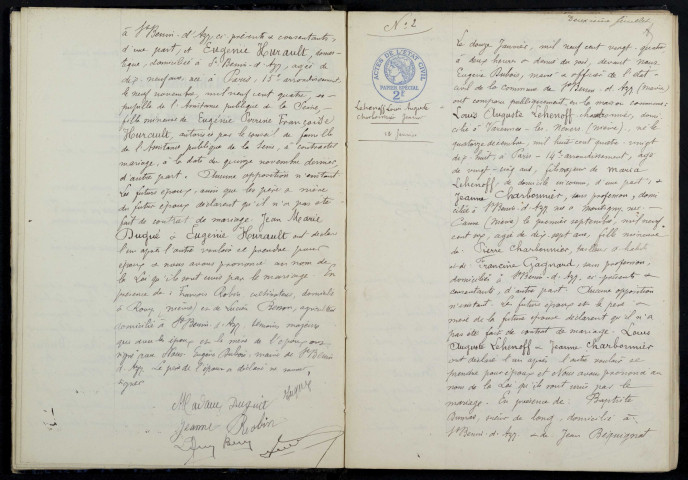 à St Benin-d'Azy ici présents & consentants,
d'une part, et Eugénie Hurault, domes-
tique, domiciliée à St Benin-d'Azy, agée de
dix-neuf ans, née à Paris, 15e arrondissement,
le neuf novembre, mil neuf cent quatre, ex-
pupille de l'Assistance publique de la Seine,
fille mineure de Eugénie Perrine Françoise
Hurault, autorisée par le conseil de famille
de l'Assistance publique de la Seine, à contracter
mariage, à la date du quinze novembre dernier,
d'autre part. Aucune opposition n'existant.
Les futurs époux, ainsi que les père & mère
du futur époux déclarent qu'il n'a pas été
fait de contrat de mariage. Jean Marie
Duqué & Eugénie Hurault ont déclaré
l'un après l'autre vouloir se prendre pour
époux & nous avons prononcé au nom de
la Loi qu'ils sont unis par le mariage. En
présence de : François Robin cultivateur, domicilié
à Rouy (Nièvre) et de Lucien Besson,
domicilié à St Benin-d'Azy, témoins majeurs
que dessus les époux et la mère de l'époux ont
signé avec Nous Eugène Dubois, maire de St Benin
d'Azy. Le père de l'époux a déclaré ne savoir
signer
Jeanne Robin
N° 2
ACTES DE L'ÉTAT CIVIL
PAPIER SPÉCIAL
2F
Lehenoff Louis Auguste
Charbonnier Jeanne
12 Janvier
Deuxième feuillet
Le douze Janvier, mil neuf cent vingt-quatre
à dix heures & demie du soir, devant nous
Eugène Dubois, maire & officier de l'état-
civil de la commune de St Benin-d'Azy (Nièvre)
ont comparu publiquement, en la maison commune :
Louis Auguste Lehenoff, domi-
cilié à Varennes-les-Nevers (Nièvre), né le
quatorze décembre, mil huit cent quatre-vingt
dix-huit à Paris - 14e arrondissement, âgé
de vingt-cinq ans, fils majeur de Maria
Lehenoff, de domicile inconnu, d'une part ; &
Jeanne Charbonnier, sans profession, domi-
ciliée à St Benin-d'Azy née à Montigny-sur-
Canne (Nièvre) le premier septembre, mil neuf
cent six, agée de dix-sept ans, fille mineure
de Pierre Charbonnier,
et de Francine Gagnard, sans profession,
domiciliés à St Benin-d'Azy, ici présents &
consentants, d'autre part. Aucune opposition
n'existant. Les futurs époux et les père &
mère de la future épouse déclarent qu'il n'a
pas été fait de contrat de mariage. Louis
Auguste Lehenoff & Jeanne Charbonnier
ont déclaré l'un après l'autre vouloir se
prendre pour époux et Nous avons prononcé au
nom de la Loi qu'ils sont unis par le
mariage. En présence de : Baptiste
scieur de long, domicilié à
St Benin-d'Azy & de Jean Bequignat